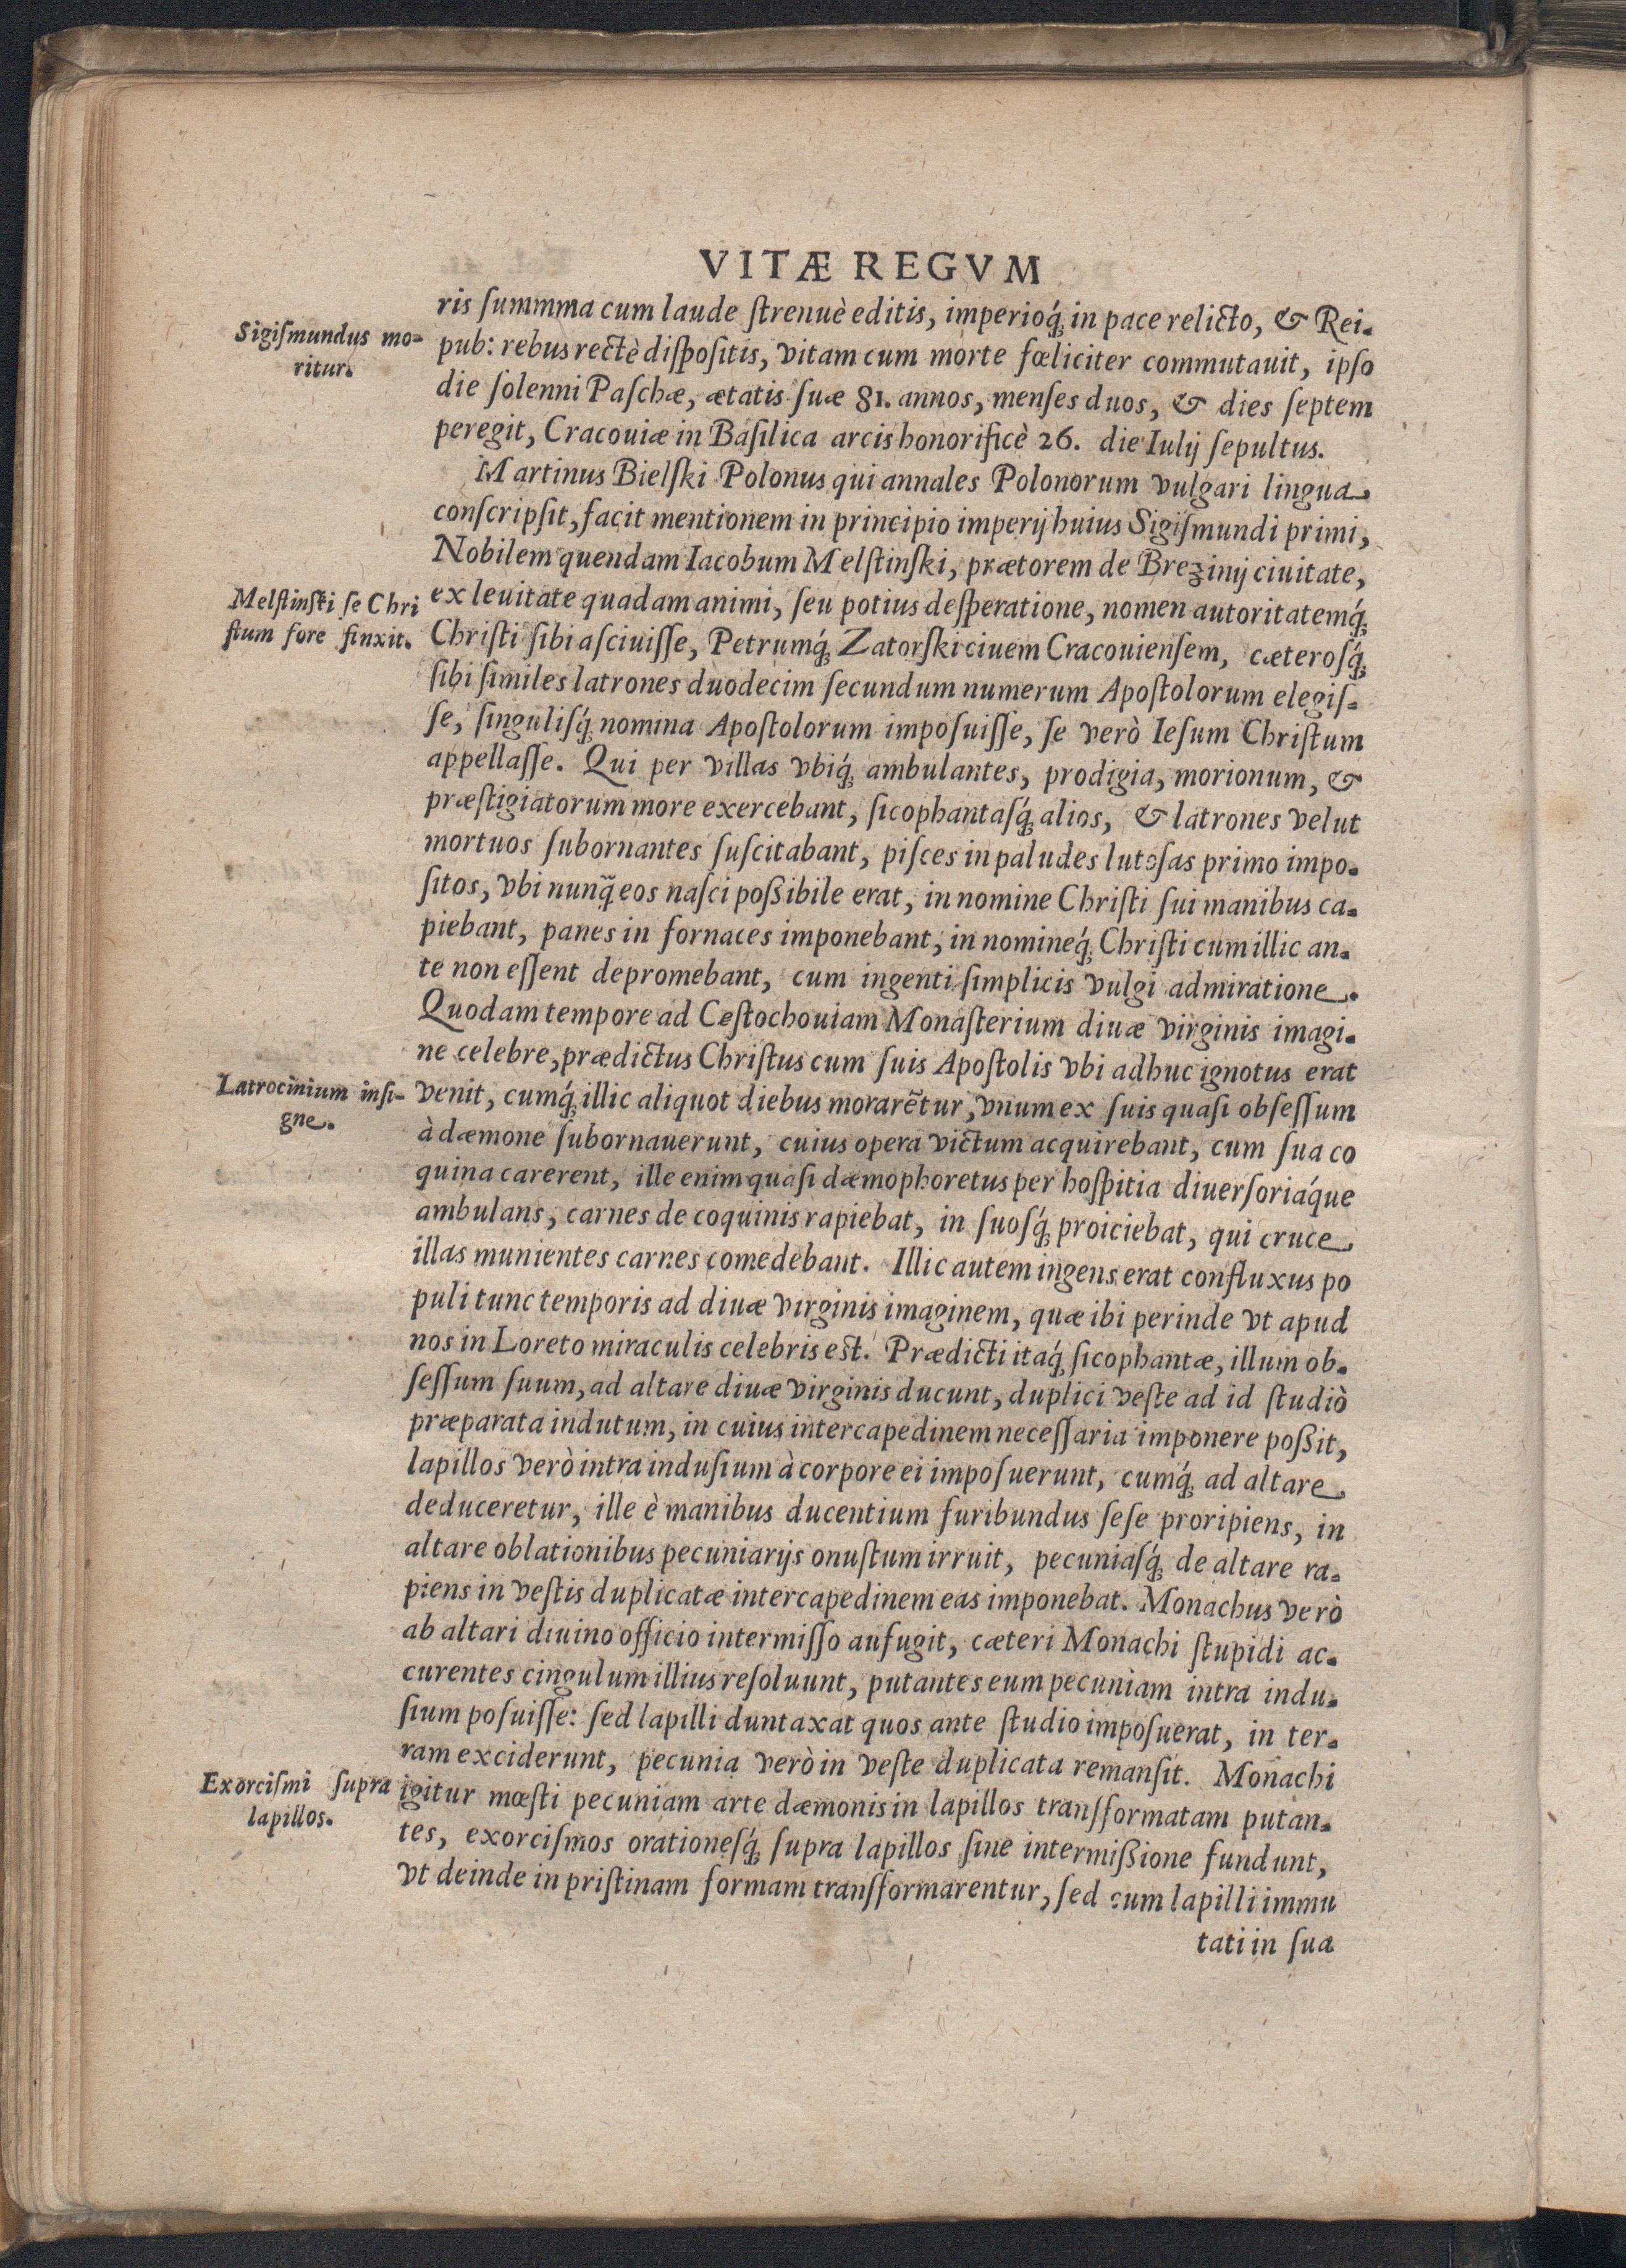 VITÆ REGVM
ris ſummma cum laude ſtrenuè editis, imperioq́ꝫ in pace relicto, & Rei-
Sigiſmundus mo-
ritur.
pub: rebus rectè diſpoſitis, vitam cum morte fœliciter commutauit, ipſo
die ſolenni Paſchæ, ætatis ſuæ 81. annos, menſes duos, & dies ſeptem
peregit, Cracouiæ in Baſilica arcis honorificè 26. die Iulij ſepultus.
Martinus Bielſki Polonus qui annales Polonorum vulgari lingua
conſcripſit, facit mentionem in principio imperij huius Sigiſmundi primi,
Nobilem quendam Iacobum Melſtinſki, prætorem de Brezinij ciuitate,
Melſtinſki ſe Chri
ſtum fore finxit.
ex leuitate quadam animi, ſeu potius deſperatione, nomen autoritatemq́ꝫ
Chriſti ſibi aſciuiſſe, Petrumq́ꝫ Zatorſki ciuem Cracouienſem, cæteroſq́ꝫ
ſibi ſimiles latrones duodecim ſecundum numerum Apoſtolorum elegiſ-
ſe, ſinguliſq́ꝫ nomina Apoſtolorum impoſuiſſe, ſe verò Ieſum Chriſtum
appellaſſe. Qui per villas vbiq́ꝫ ambulantes, prodigia, morionum, &
præſtigiatorum more exercebant, ſicophantaſq́ꝫ alios, & latrones velut
mortuos ſubornantes ſuſcitabant, piſces in paludes lutoſas primo impo-
ſitos, vbi nunq̃ eos naſci poßibile erat, in nomine Chriſti ſui manibus ca-
piebant, panes in fornaces imponebant, in nomineq́ꝫ Chriſti cum illic an-
te non eſſent depromebant, cum ingenti ſimplicis vulgi admiratione.
Quodam tempore ad Ceſtochouiam Monaſterium diuæ virginis imagi-
ne celebre, prædictus Chriſtus cum ſuis Apoſtolis vbi adhuc ignotus erat
Latrocinium inſi-
gne.
venit, cumq́ꝫ illic aliquot diebus morarẽtur, vnum ex ſuis quaſi obſeſſum
à dæmone ſubornauerunt, cuius opera victum acquirebant, cum ſua co
quina carerent, ille enim quaſi dæmophoretus per hoſpitia diuerſoriáque
ambulans, carnes de coquinis rapiebat, in ſuoſq́ꝫ proiciebat, qui cruce
illas munientes carnes comedebant. Illic autem ingens erat confluxus po
puli tunc temporis ad diuæ virginis imaginem, quæ ibi perinde vt apud
nos in Loreto miraculis celebris est. Prædicti itaq́ꝫ ſicophantæ, illum ob-
ſeſſum ſuum, ad altare diuæ virginis ducunt, duplici veſte ad id ſtudiò
præparata indutum, in cuius intercapedinem neceſſaria imponere poßit,
lapillos verò intra induſium à corpore ei impoſuerunt, cumq́ꝫ ad altare
deduceretur, ille è manibus ducentium furibundus ſeſe proripiens, in
altare oblationibus pecuniarijs onuſtum irruit, pecuniaſq́ꝫ de altare ra-
piens in veſtis duplicatæ intercapedinem eas imponebat. Monachus verò
ab altari diuino officio intermiſſo aufugit, cæteri Monachi ſtupidi ac-
curentes cingulum illius reſoluunt, putantes eum pecuniam intra indu-
ſium poſuiſſe: ſed lapilli duntaxat quos ante ſtudio impoſuerat, in ter-
ram exciderunt, pecunia verò in veſte duplicata remanſit. Monachi
Exorciſmi ſupra
lapillos.
igitur mœſti pecuniam arte dæmonis in lapillos tranſformatam putan-
tes, exorciſmos orationeſq́ꝫ ſupra lapillos ſine intermißione fundunt,
vt deinde in priſtinam formam tranſformarentur, ſed cum lapilli immu
tati in ſua